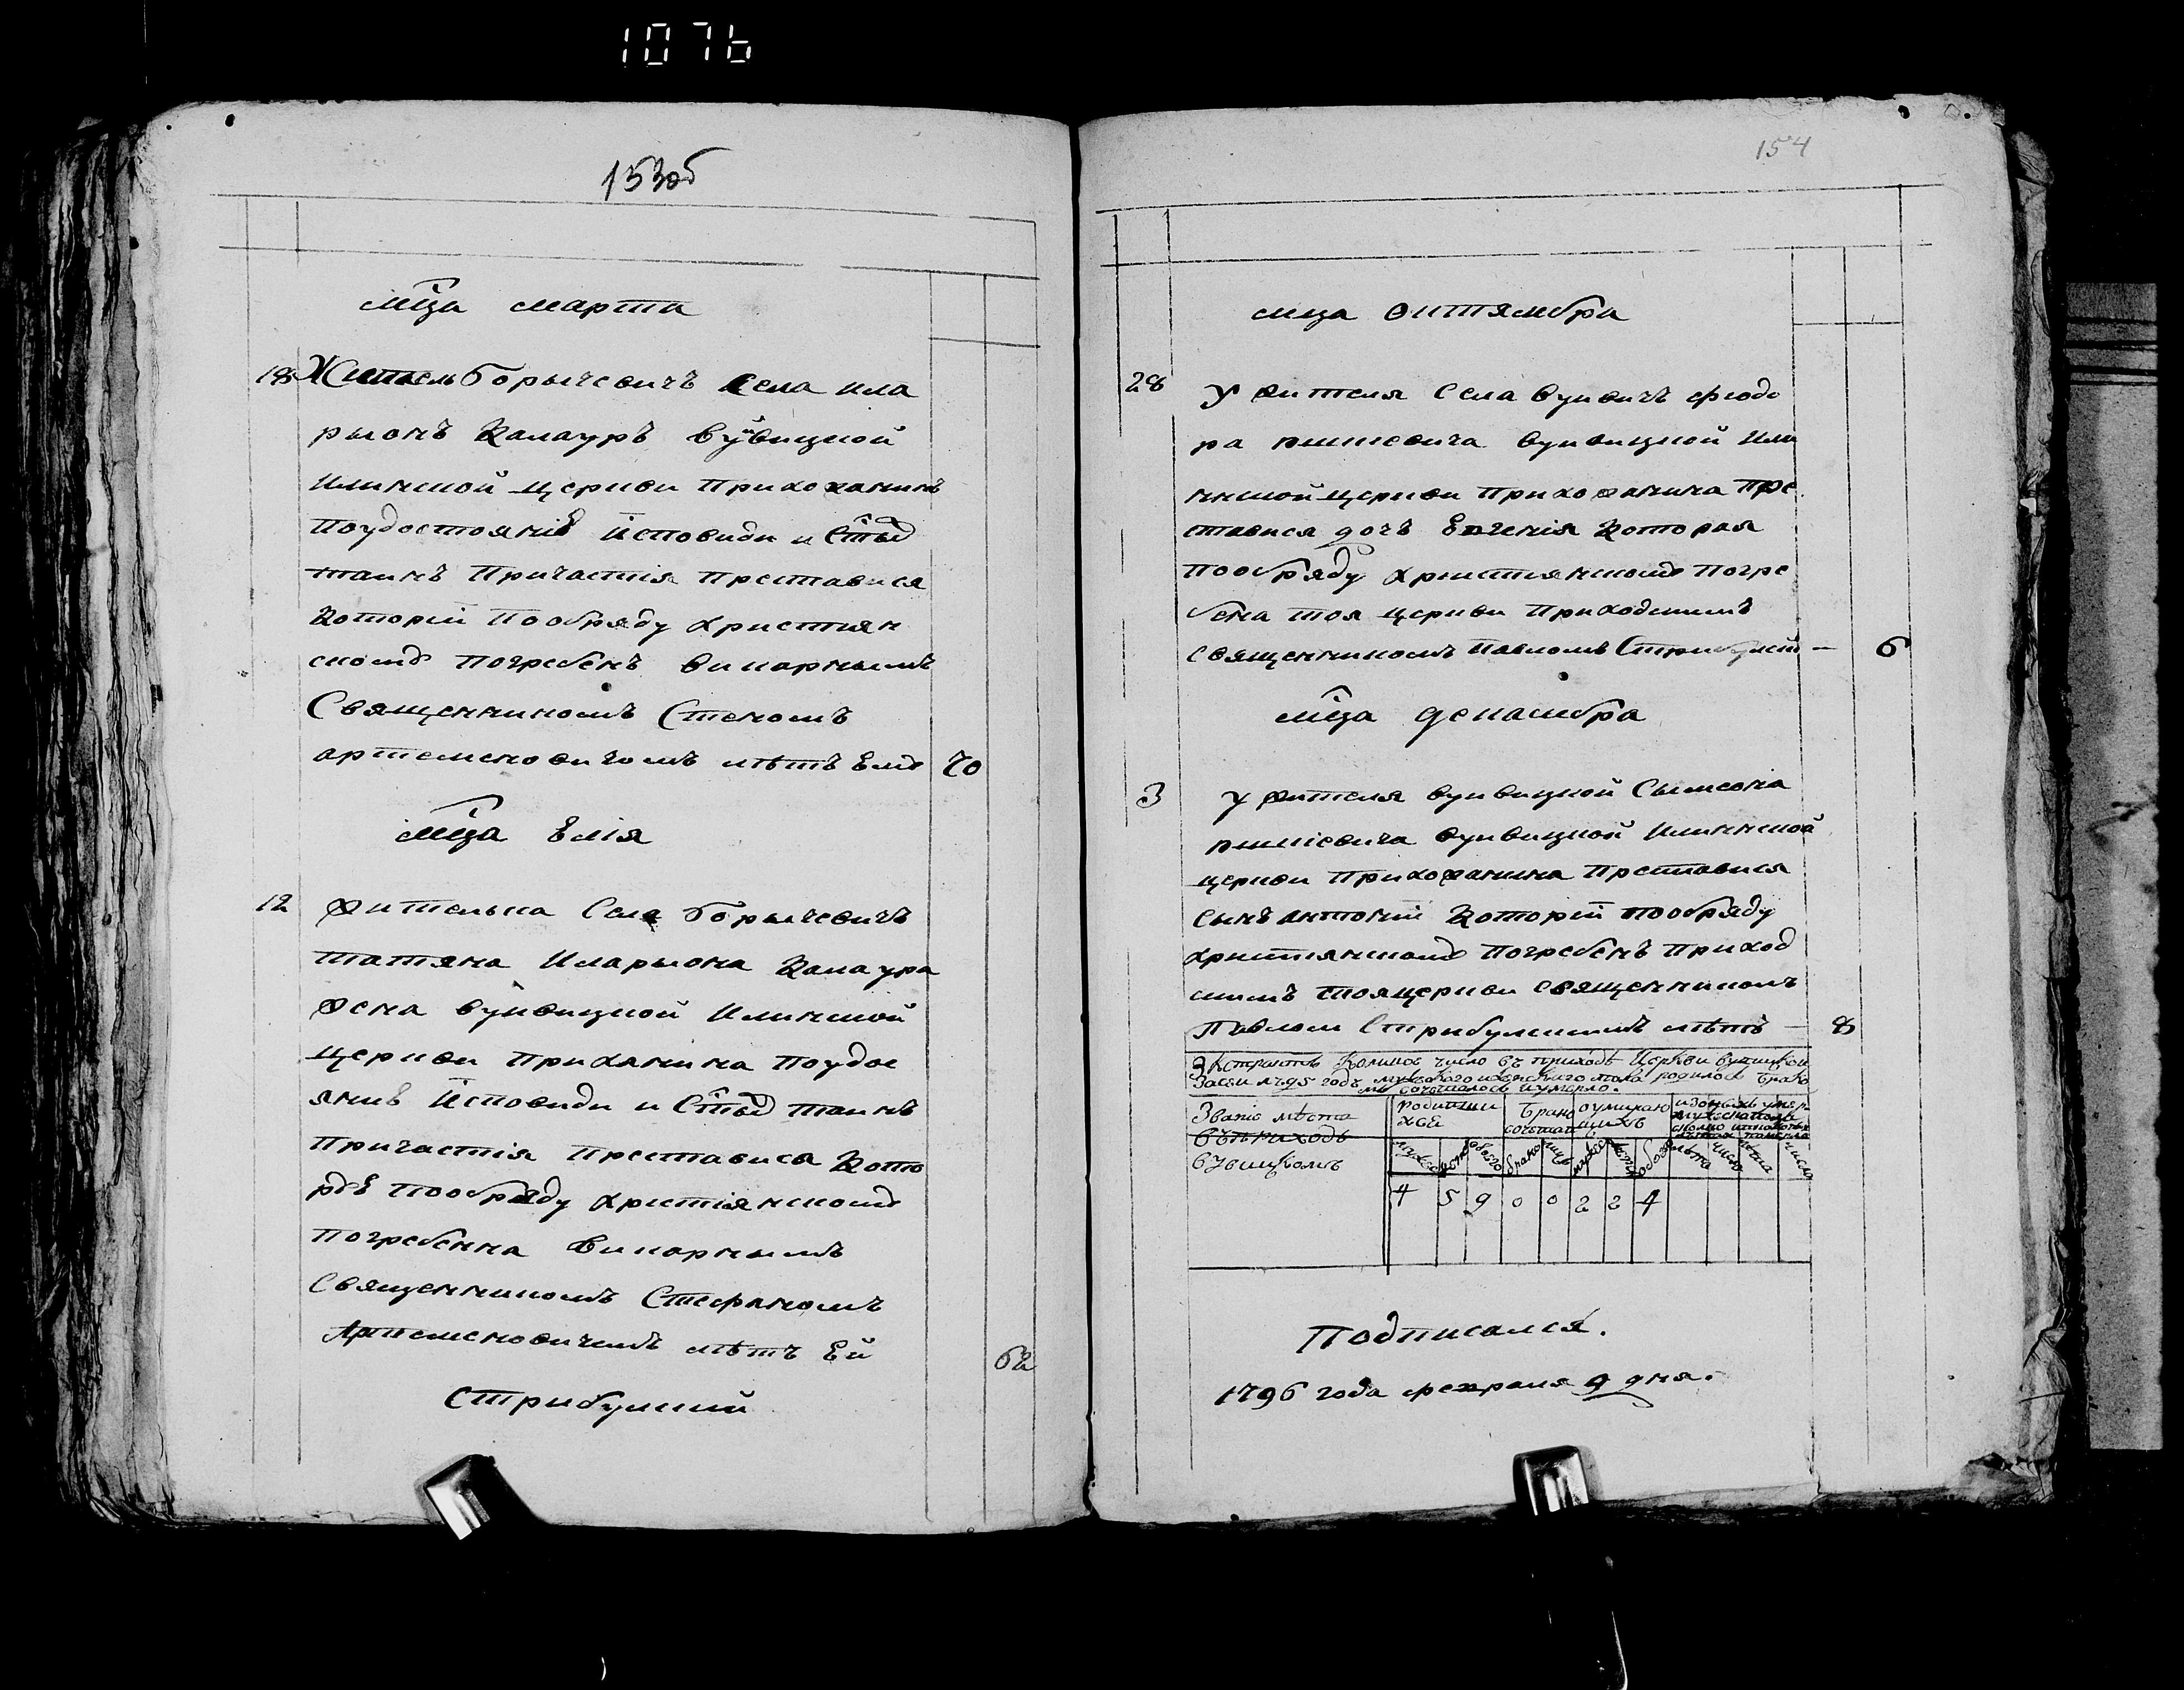 1076
153об
мца марта
18 Житель Борычевичъ села ила
рыонъ Кацауръ вуйвицкой
илинской церкви прихожанинъ
поудостояніѣ исповиди и стыхъ
таинъ причастія преставися
которій пообряду християн
скому погребенъ викарнымъ
священникомъ Стеномъ
артемековичомъ лѣтъ ѣму 70
мца ѣлія
12 жителька села Борычевичъ
татяна Иларыона Кацаура
жена вуйвицкой Илинской
церкви прихаяина поудос
яниѣ исповиди и стыхъ таинъ
причастія преставися кото
раѣ пообряду християнскому
погребенна викарнымъ
священникомъ Стефаномъ
Артемековичемъ лѣтъ ѣй 62
Стрибулский
154
мца октямбра
28 у жителя села вуйвичъ феодо
ра вуйвицкой или
нской церкви прихожанина пре
ставися дочъ которая
пообряду християнскому погре
бена тоя церкви приходскимъ
священникомъ павломъ Стрибулскі — 6
мца декамбра
3 у жителя вуйвицкой Сымеона
вуйвицкой илинской
церкви прихожанина преставися
сынъ антоній которій пообряду
християнскому погребенъ приход
скимъ тояцеркви священникомъ
павлом Стрибулскимъ лѣтъ — 8
Экстрактъ Коликое число въ приходѣ Церкви
годъ родилось Брако
сочеталось иумерло.
Званіе мѣста родивши Брако оумираю
въприходѣ хся сочетан щихъ
вувицкомъ
4 5 9 0 0 2 2 4
Подписался.
1796 года февраля 9 дня.